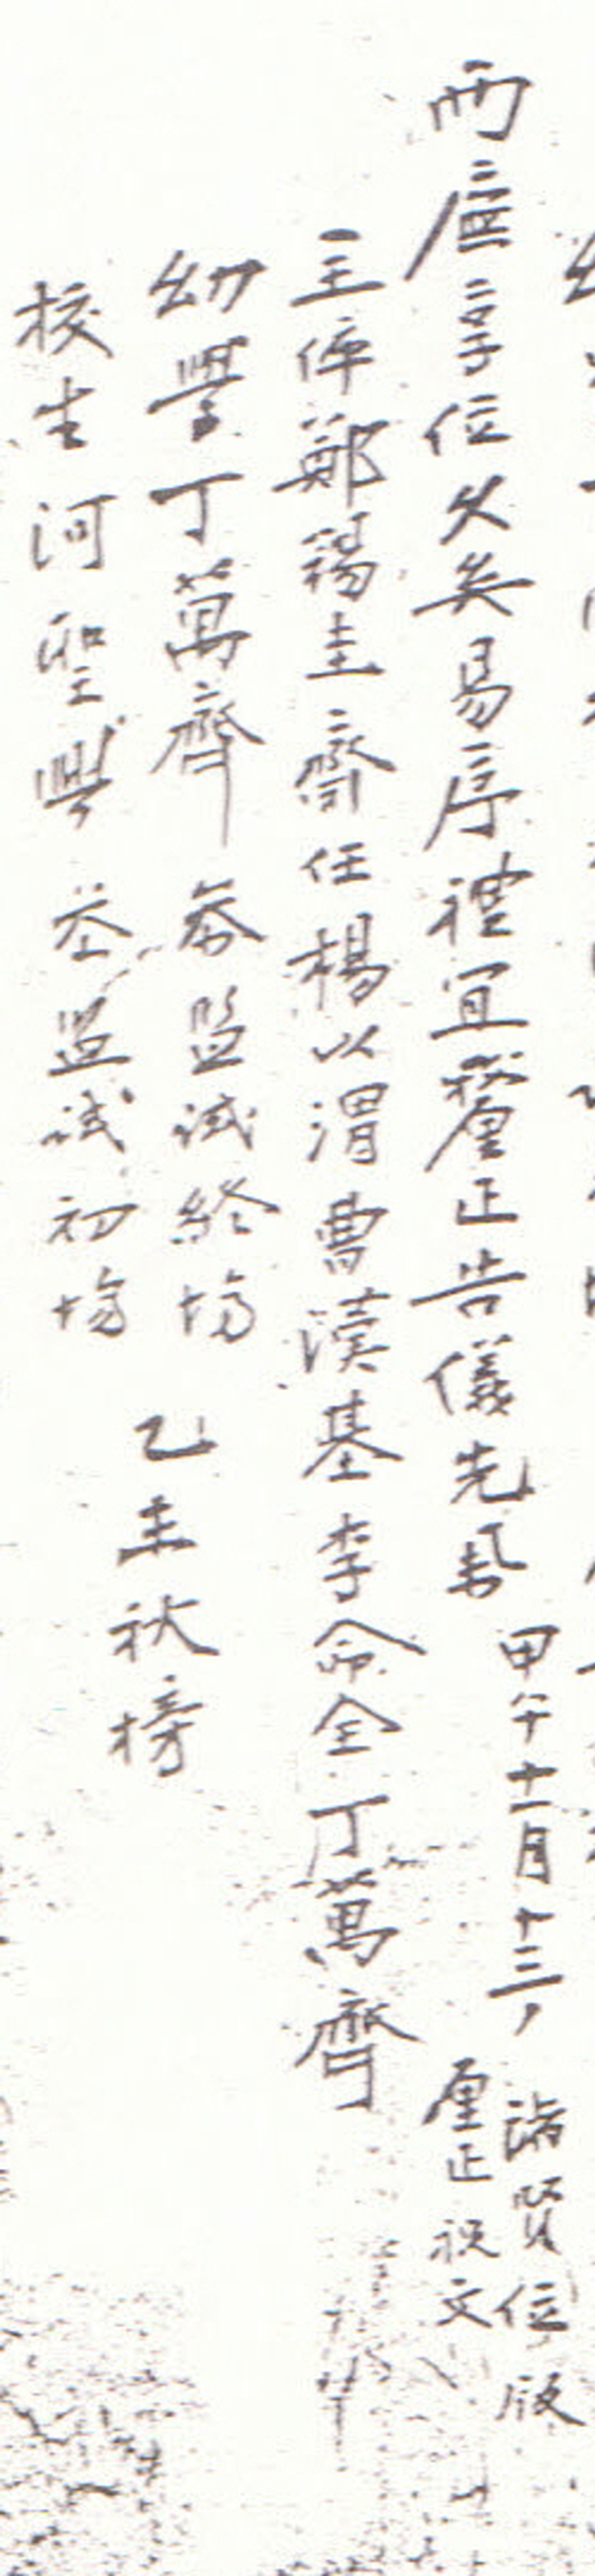 兩廡享位久矣易序禮宜釐正告儀先哉 甲午十一月十三日 諸賢位版
釐正祝文
主倅鄭錫圭齋任楊以渭曺漢基李命全丁萬齊
幼學丁萬齊 叅監試終場
校生河聖興 叅監試初場
乙未秋榜